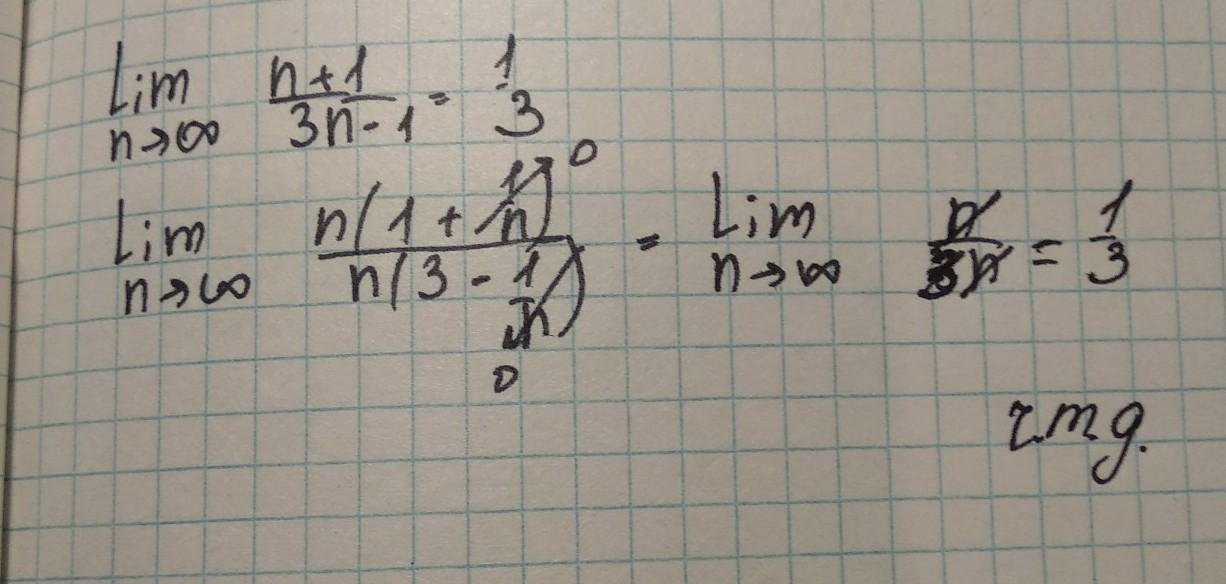 lim n→∞ n+1/3n-1 = 1/3
lim n→∞ n(1 + 1/n)→0 / n(3 - 1/n)→0 = lim n→∞ n/3n = 1/3
г.т.д.